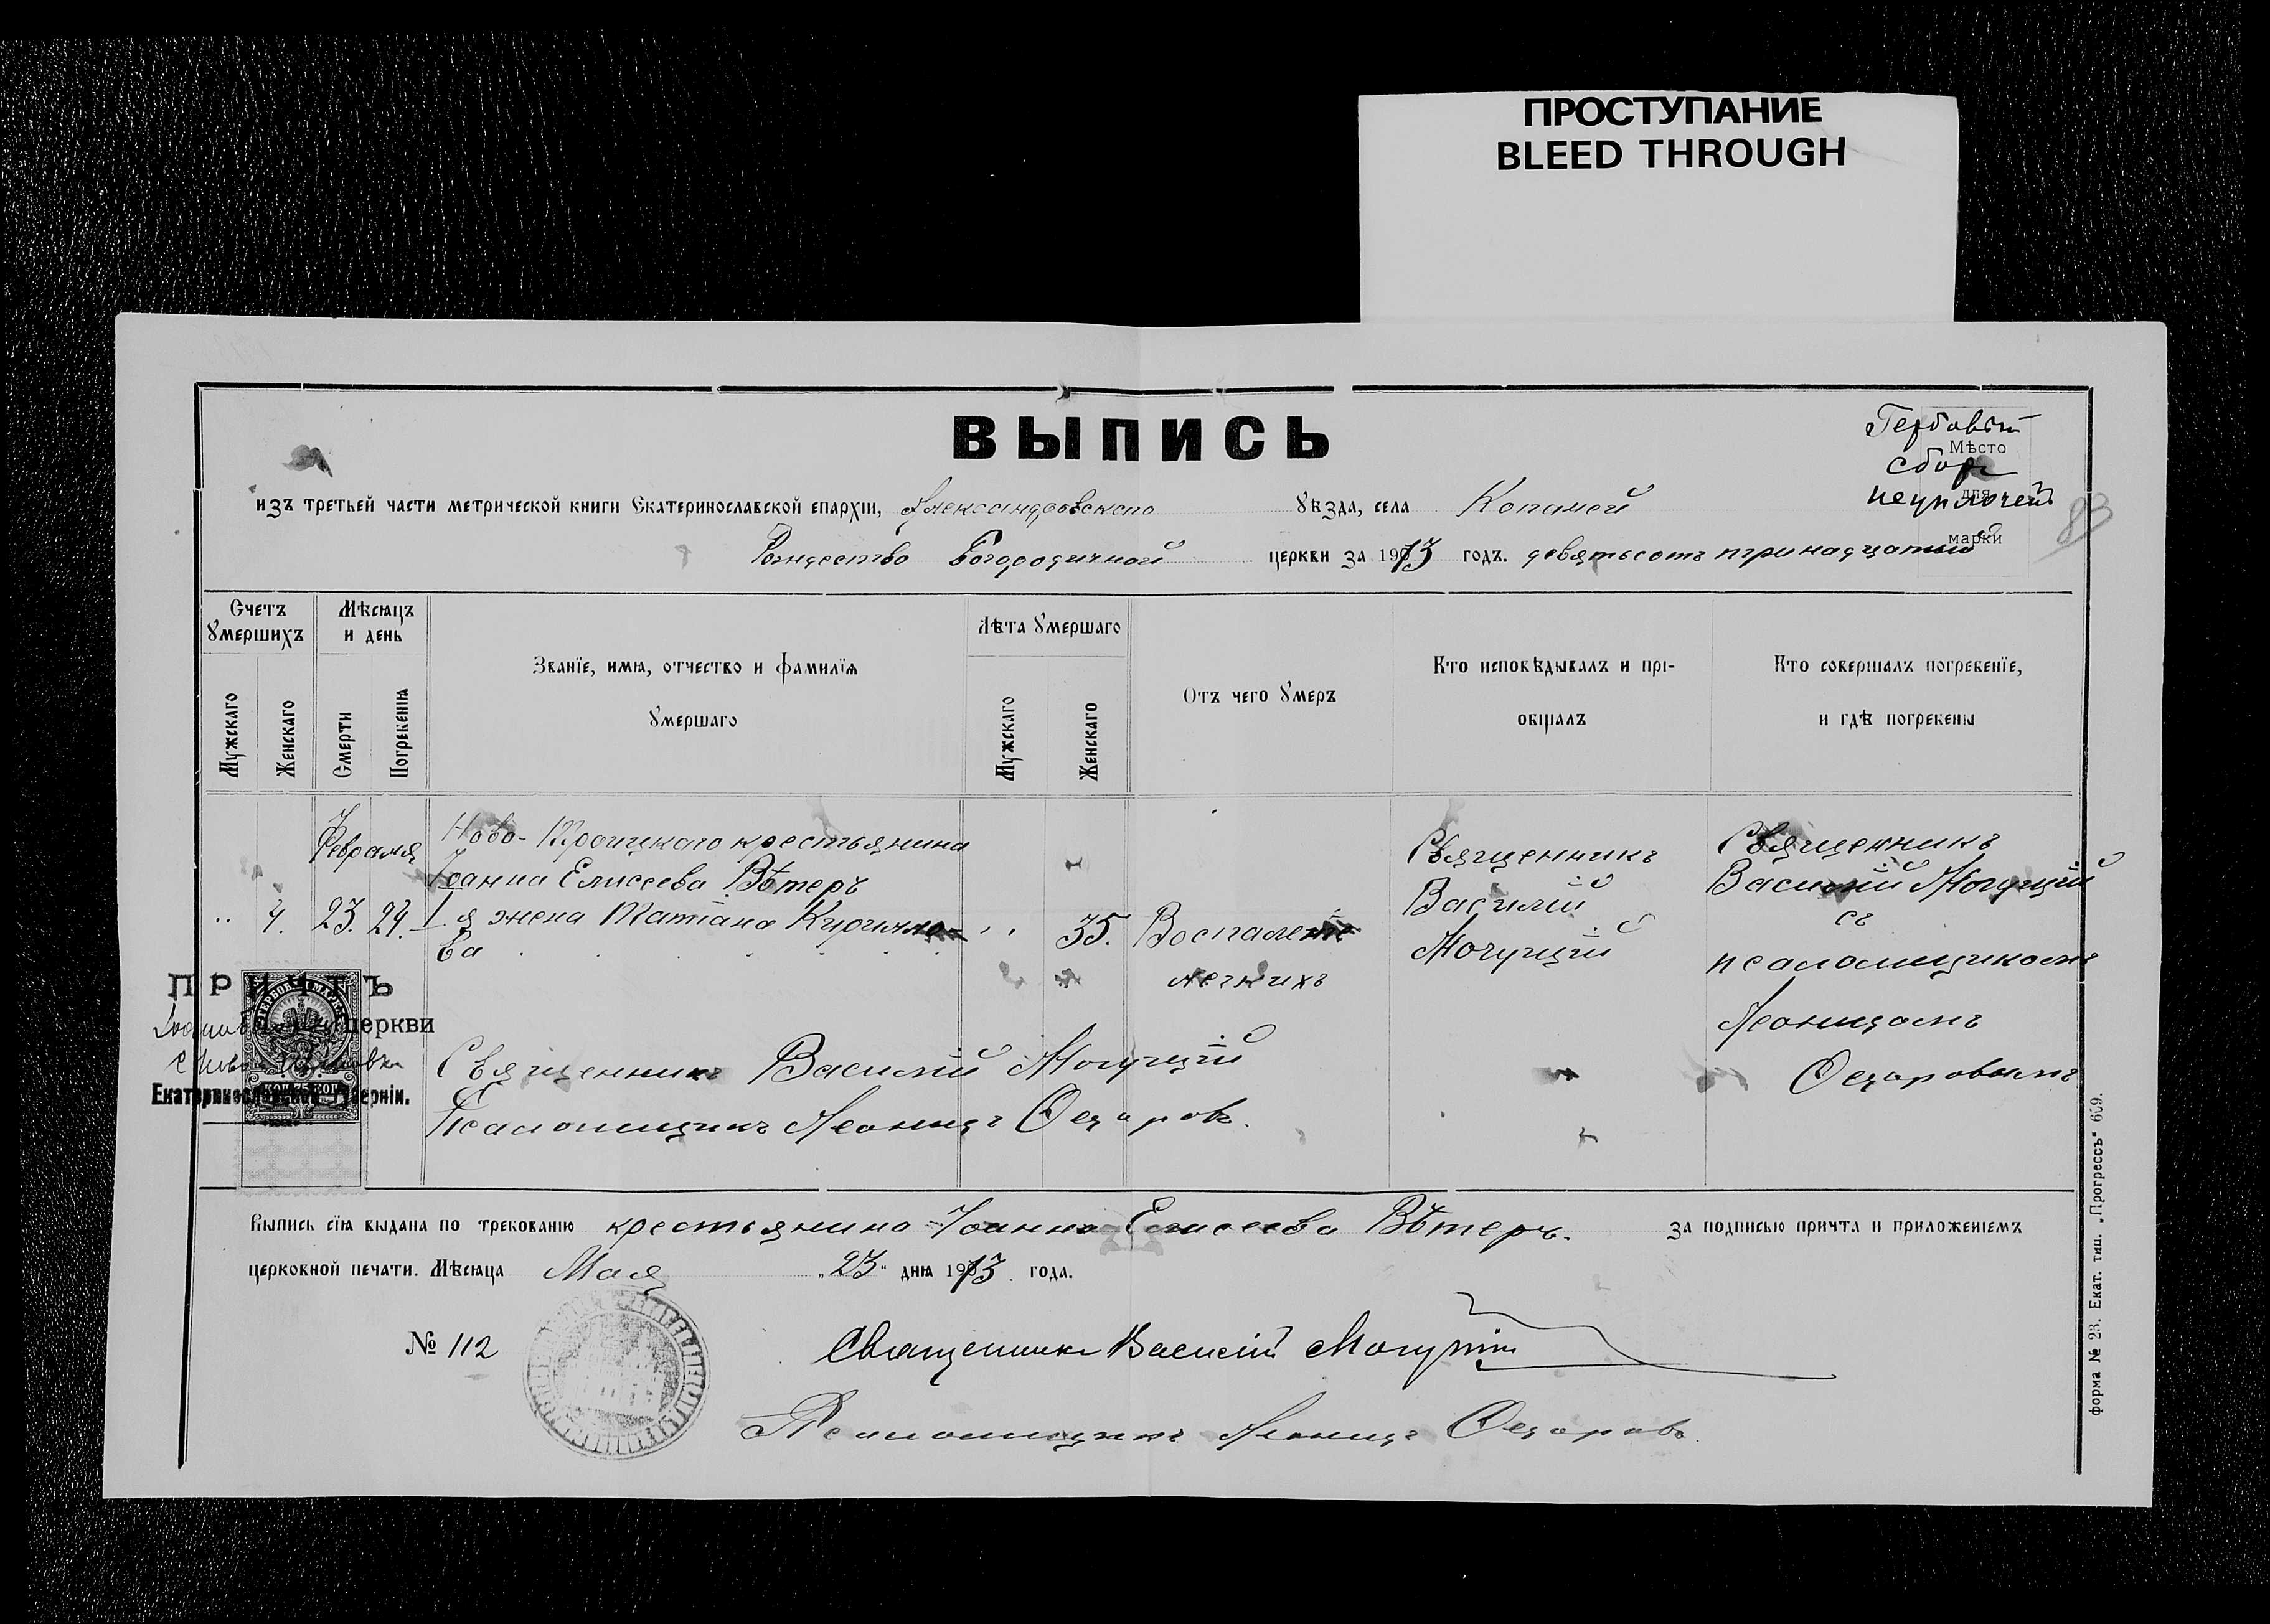 ПРОСТУПАНИЕ
BLEED THROUGH
ВЫПИСЬ
Гербовый
сборъ
неуплоченъ
Мѣсто
для
марки
83
изъ третьей части метрической книги Екатеринославской епархіи, Александровскаго уѣзда, села Копаней
Рождество Богородичной церкви за 1913 годъ. девятьсотъ тринадцатый
Счетъ умершихъ
Мужскаго
Женскаго
Мѣсяцъ и день
Смерти
Погребенія
Званіе, имя, отчество и фамилія
умершаго
Лѣта умершаго
Мужскаго
Женскаго
Отъ чего умеръ
Кто исповѣдывалъ и прі-
общалъ
Кто совершалъ погребеніе,
и гдѣ погребены
Февраля
4.
23.
24.
Ново-Троицкаго крестьянина
Іоанна Елисеева Вѣтеръ
1-я жена Татіана Кирилло
ва
35.
Воспаленіе
легкихъ
Священникъ
Василій
Могущій
Священникъ
Василій Могущій
съ
псаломщикомъ
Леонидомъ
Федоровымъ
ПРИЧТЪ
церкви
Екатеринославской губерніи.
ГЕРБОВАЯ МАРКА
КОП. 75 КОП.
Священникъ Василій Могущій
Псаломщикъ Леонидъ Федоровъ.
Выпись сія выдана по требованію крестьянина Іоанна Елисеева Вѣтеръ. за подписью причта и приложеніемъ
церковной печати. Мѣсяца Мая „23" дня 1913 года.
№ 112
Священникъ Василій Могущій
Псаломщикъ Леонидъ Федоровъ.
форма № 23. Екат. тип. „Прогрессъ" 609.